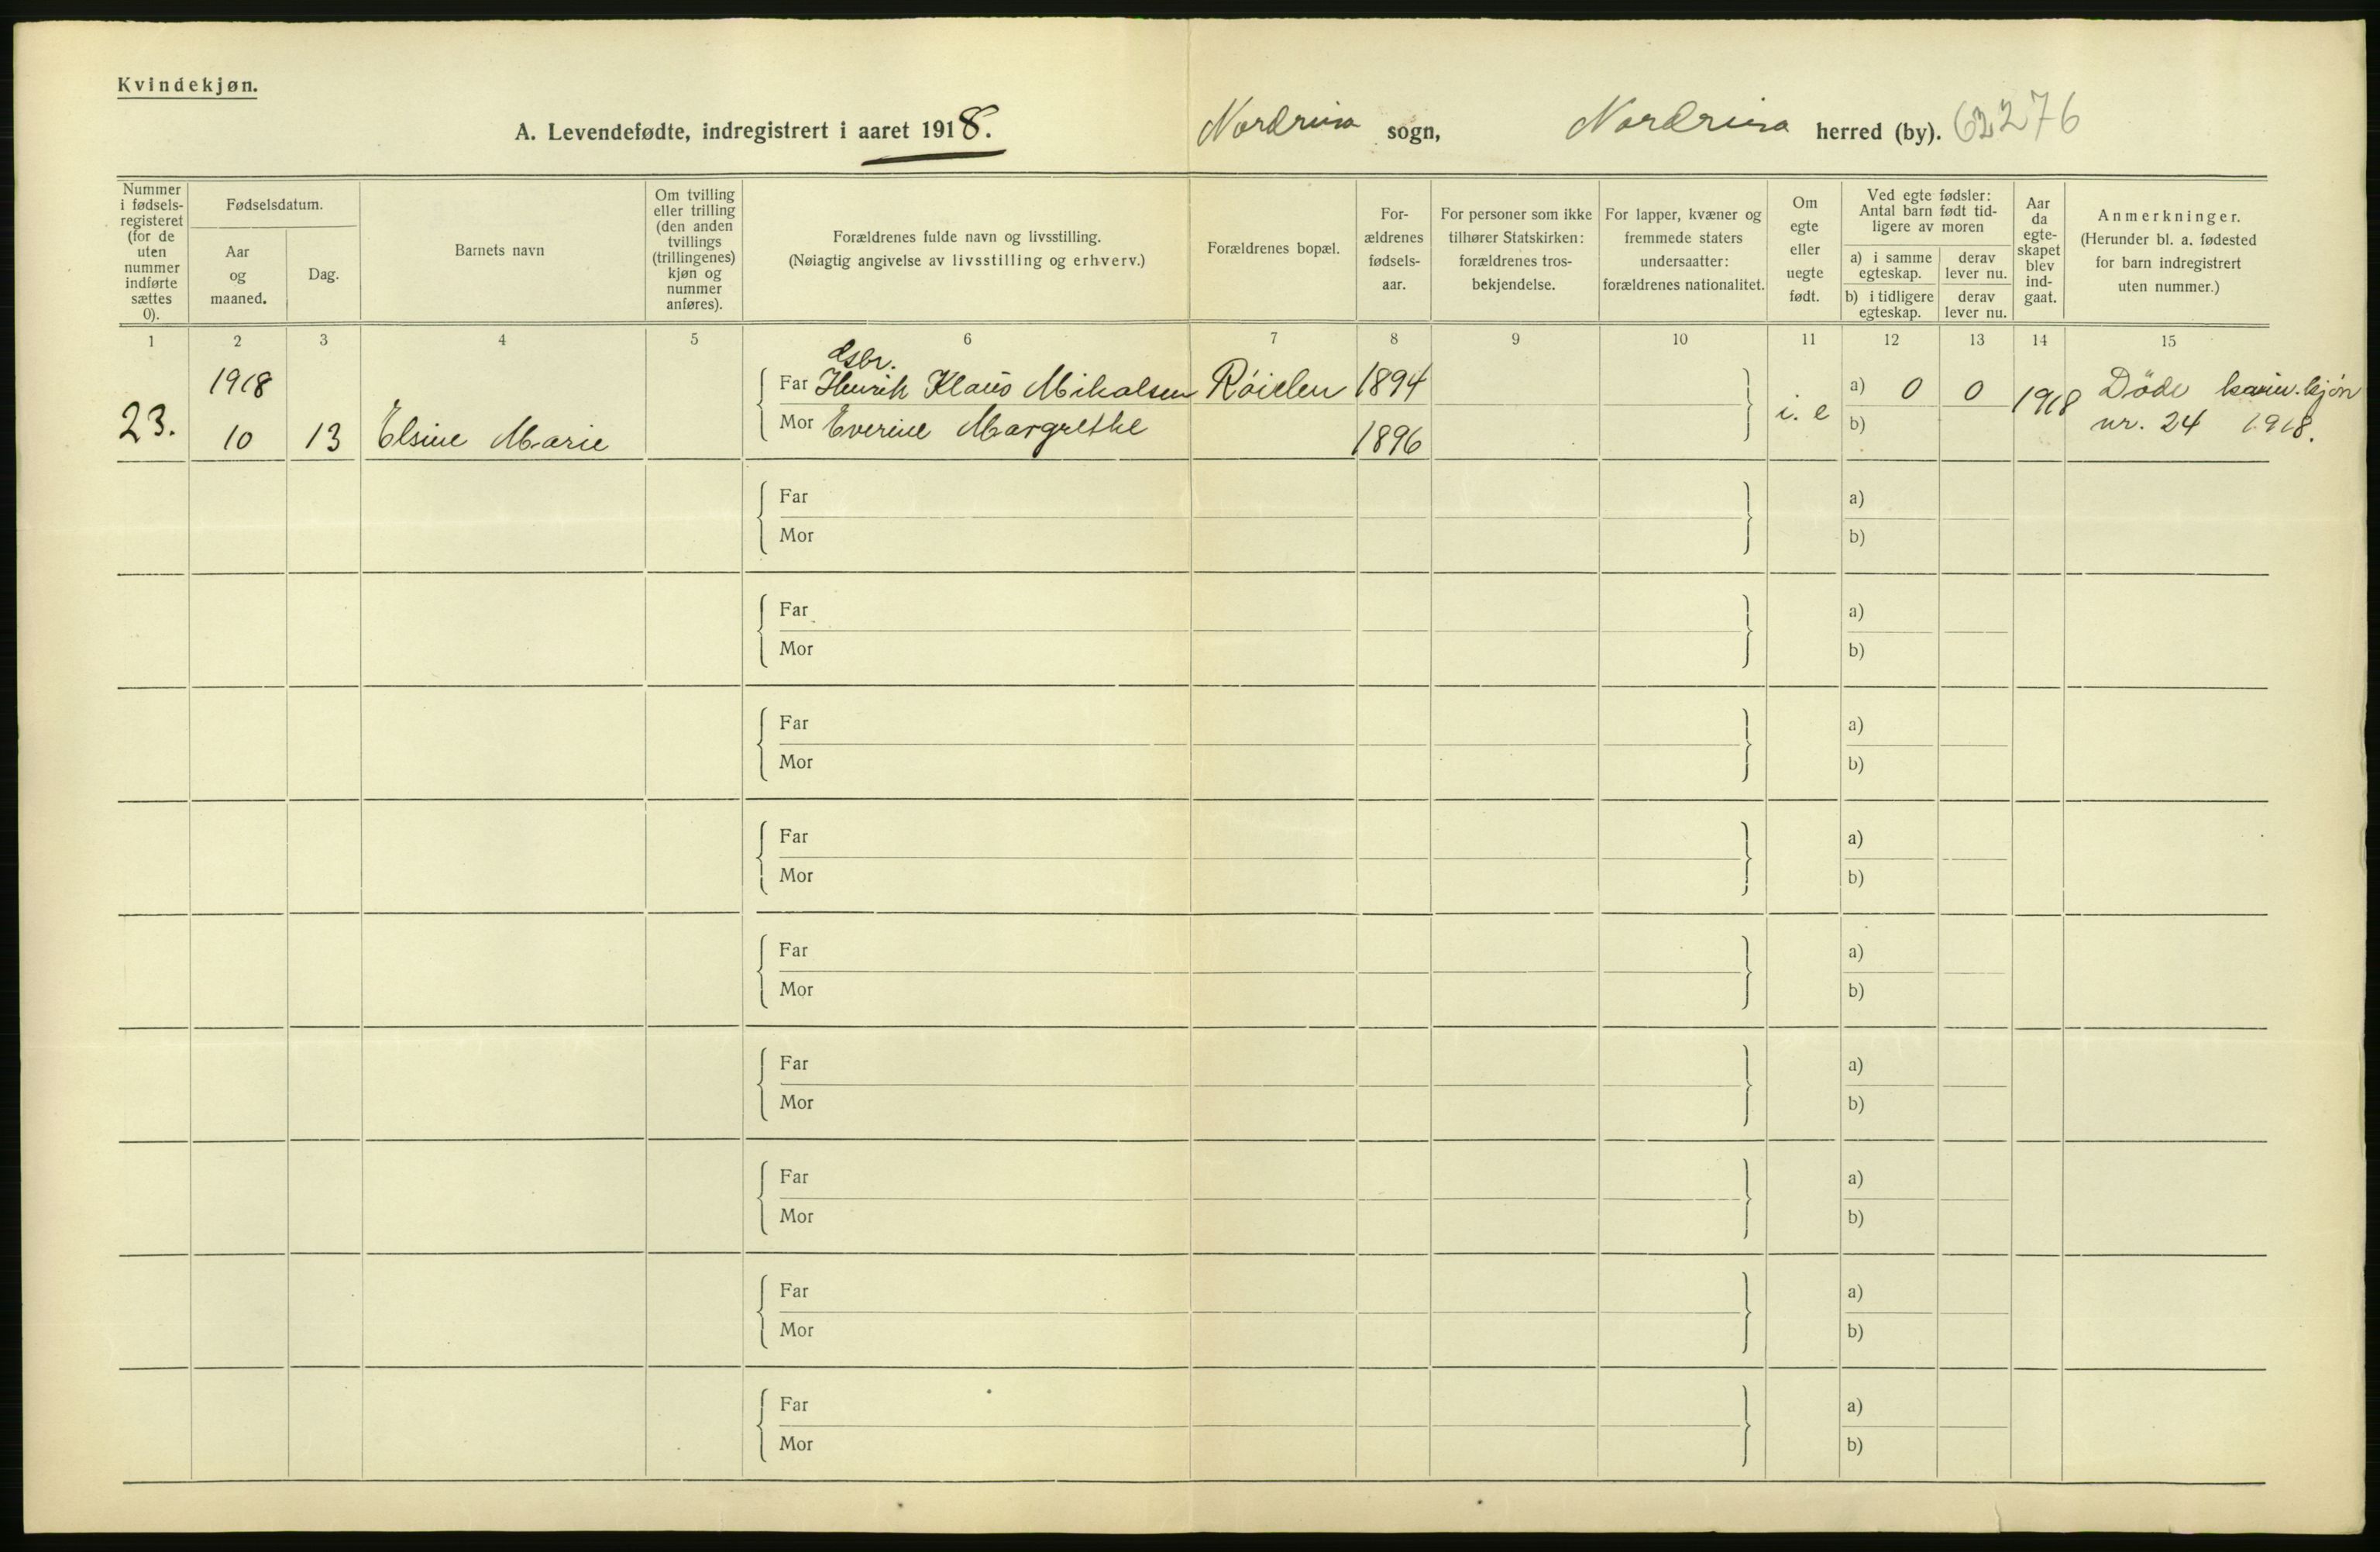 Kvindekjøn.
A. Levendefødte, indregistrert i aaret 1918. Nordreisa sogn, Nordreisa herred (by). 62276
Nummer i fødsels-registeret (for de uten nummer indførte sættes 0).
Fødselsdatum.
Aar og maaned.
Dag.
Barnets navn
Om tvilling eller trilling (den anden tvillings (trillingenes) kjøn og nummer anføres).
Forældrenes fulde navn og livsstilling.
(Nøiagtig angivelse av livsstilling og erhverv.)
Forældrenes bopæl.
For-ældrenes fødsels-aar.
For personer som ikke tilhører Statskirken: forældrenes tros-bekjendelse.
For lapper, kvæner og fremmede staters undersaatter: forældrenes nationalitet.
Om egte eller uegte født.
Ved egte fødsler: Antal barn født tid-ligere av moren
a) i samme egteskap.
derav lever nu.
b) i tidligere egteskap.
derav lever nu.
Aar da egte-skapet blev ind-gaat.
Anmerkninger.
(Herunder bl. a. fødested for barn indregistrert uten nummer.)
1 2 3 4 5 6 7 8 9 10 11 12 13 14 15
23.
1918
10 13 Elsine Marie
gsbr.
Far Henrik Klaus Mikalsen Róielen 1894
Mor Everine Margrethe 1896
i. e
a) 0 0
b)
1918
Döde kvin. kjön
nr. 24 1918.
Far a)
Mor b)
Far a)
Mor b)
Far a)
Mor b)
Far a)
Mor b)
Far a)
Mor b)
Far a)
Mor b)
Far a)
Mor b)
Far a)
Mor b)
Far a)
Mor b)